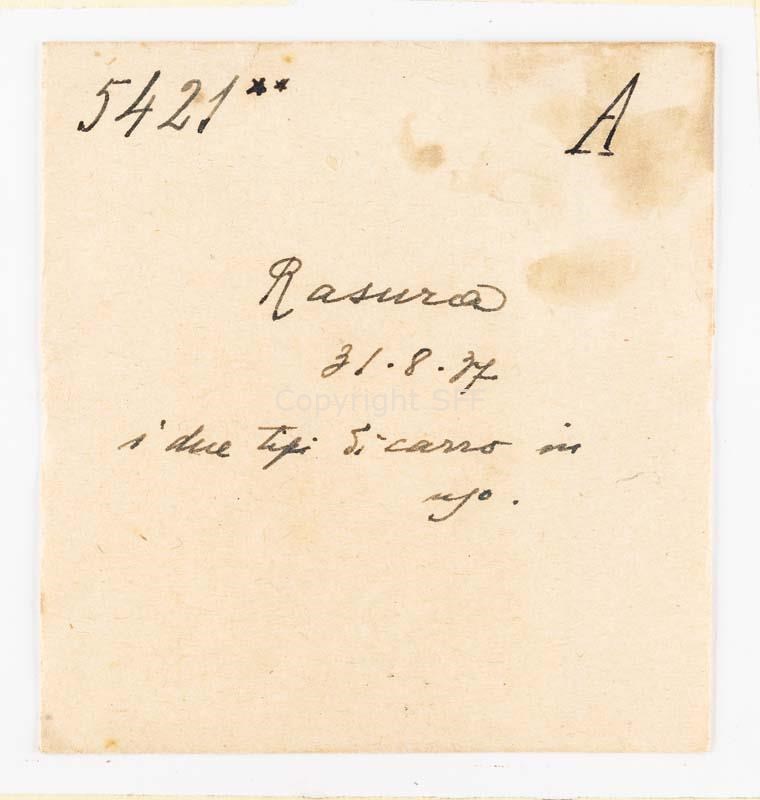 5421** A
Rasura
31.8.37
Copyright SFF
i due tipi di carro in
uso.